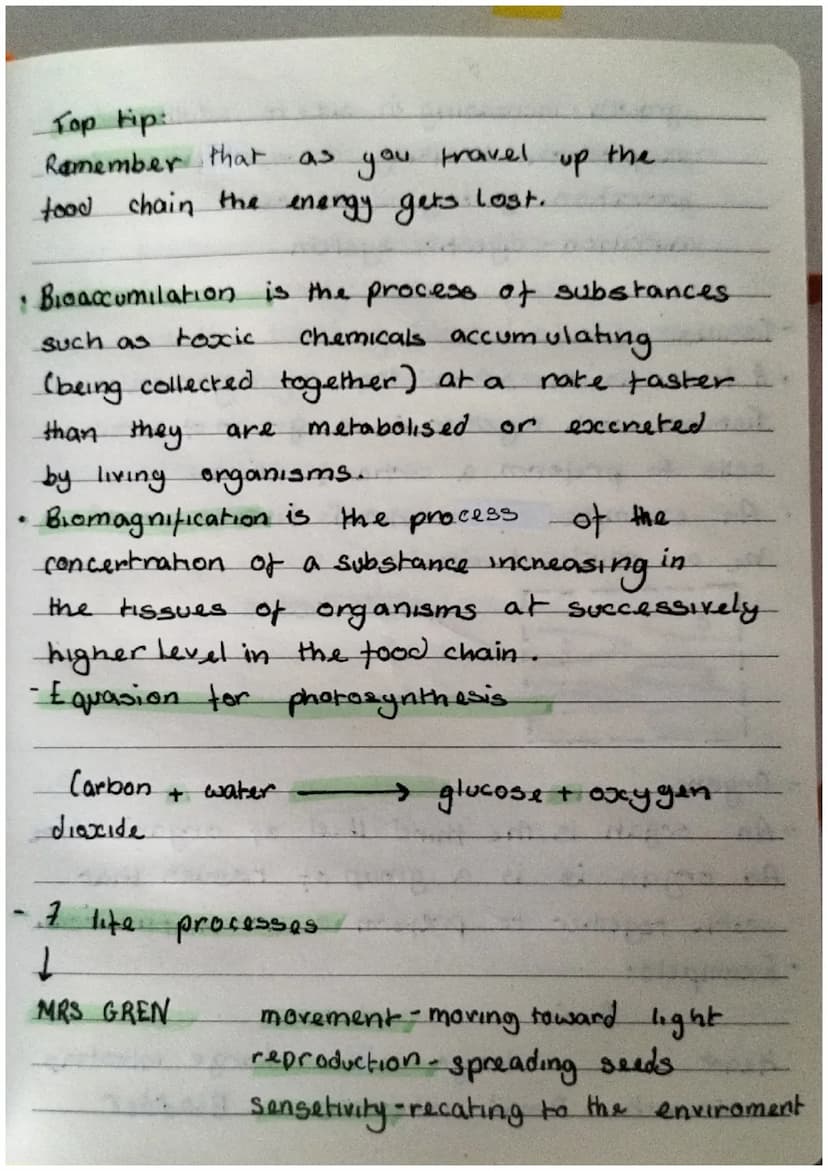 Top tip:
Remember that as you travel up the
food chain the energy gets lost.
• Bioaccumilation is the process of substances
such as toxic chemicals accumulating
(being collected together) at a rate faster
than they are metabolised or excereted
by living organisms.
• Biomagnification is the process of the
concertration of a substance increasing in
the tissues of organisms at successively
higher level in the food chain.
- Equasion for photosynthesis
Carbon + water → glucose + oxygen
dioxide
- 7 life processes
↓
MRS GREN movement - moving toward light
reproduction - spreading seeds
Sensetivity - recating to the enviroment